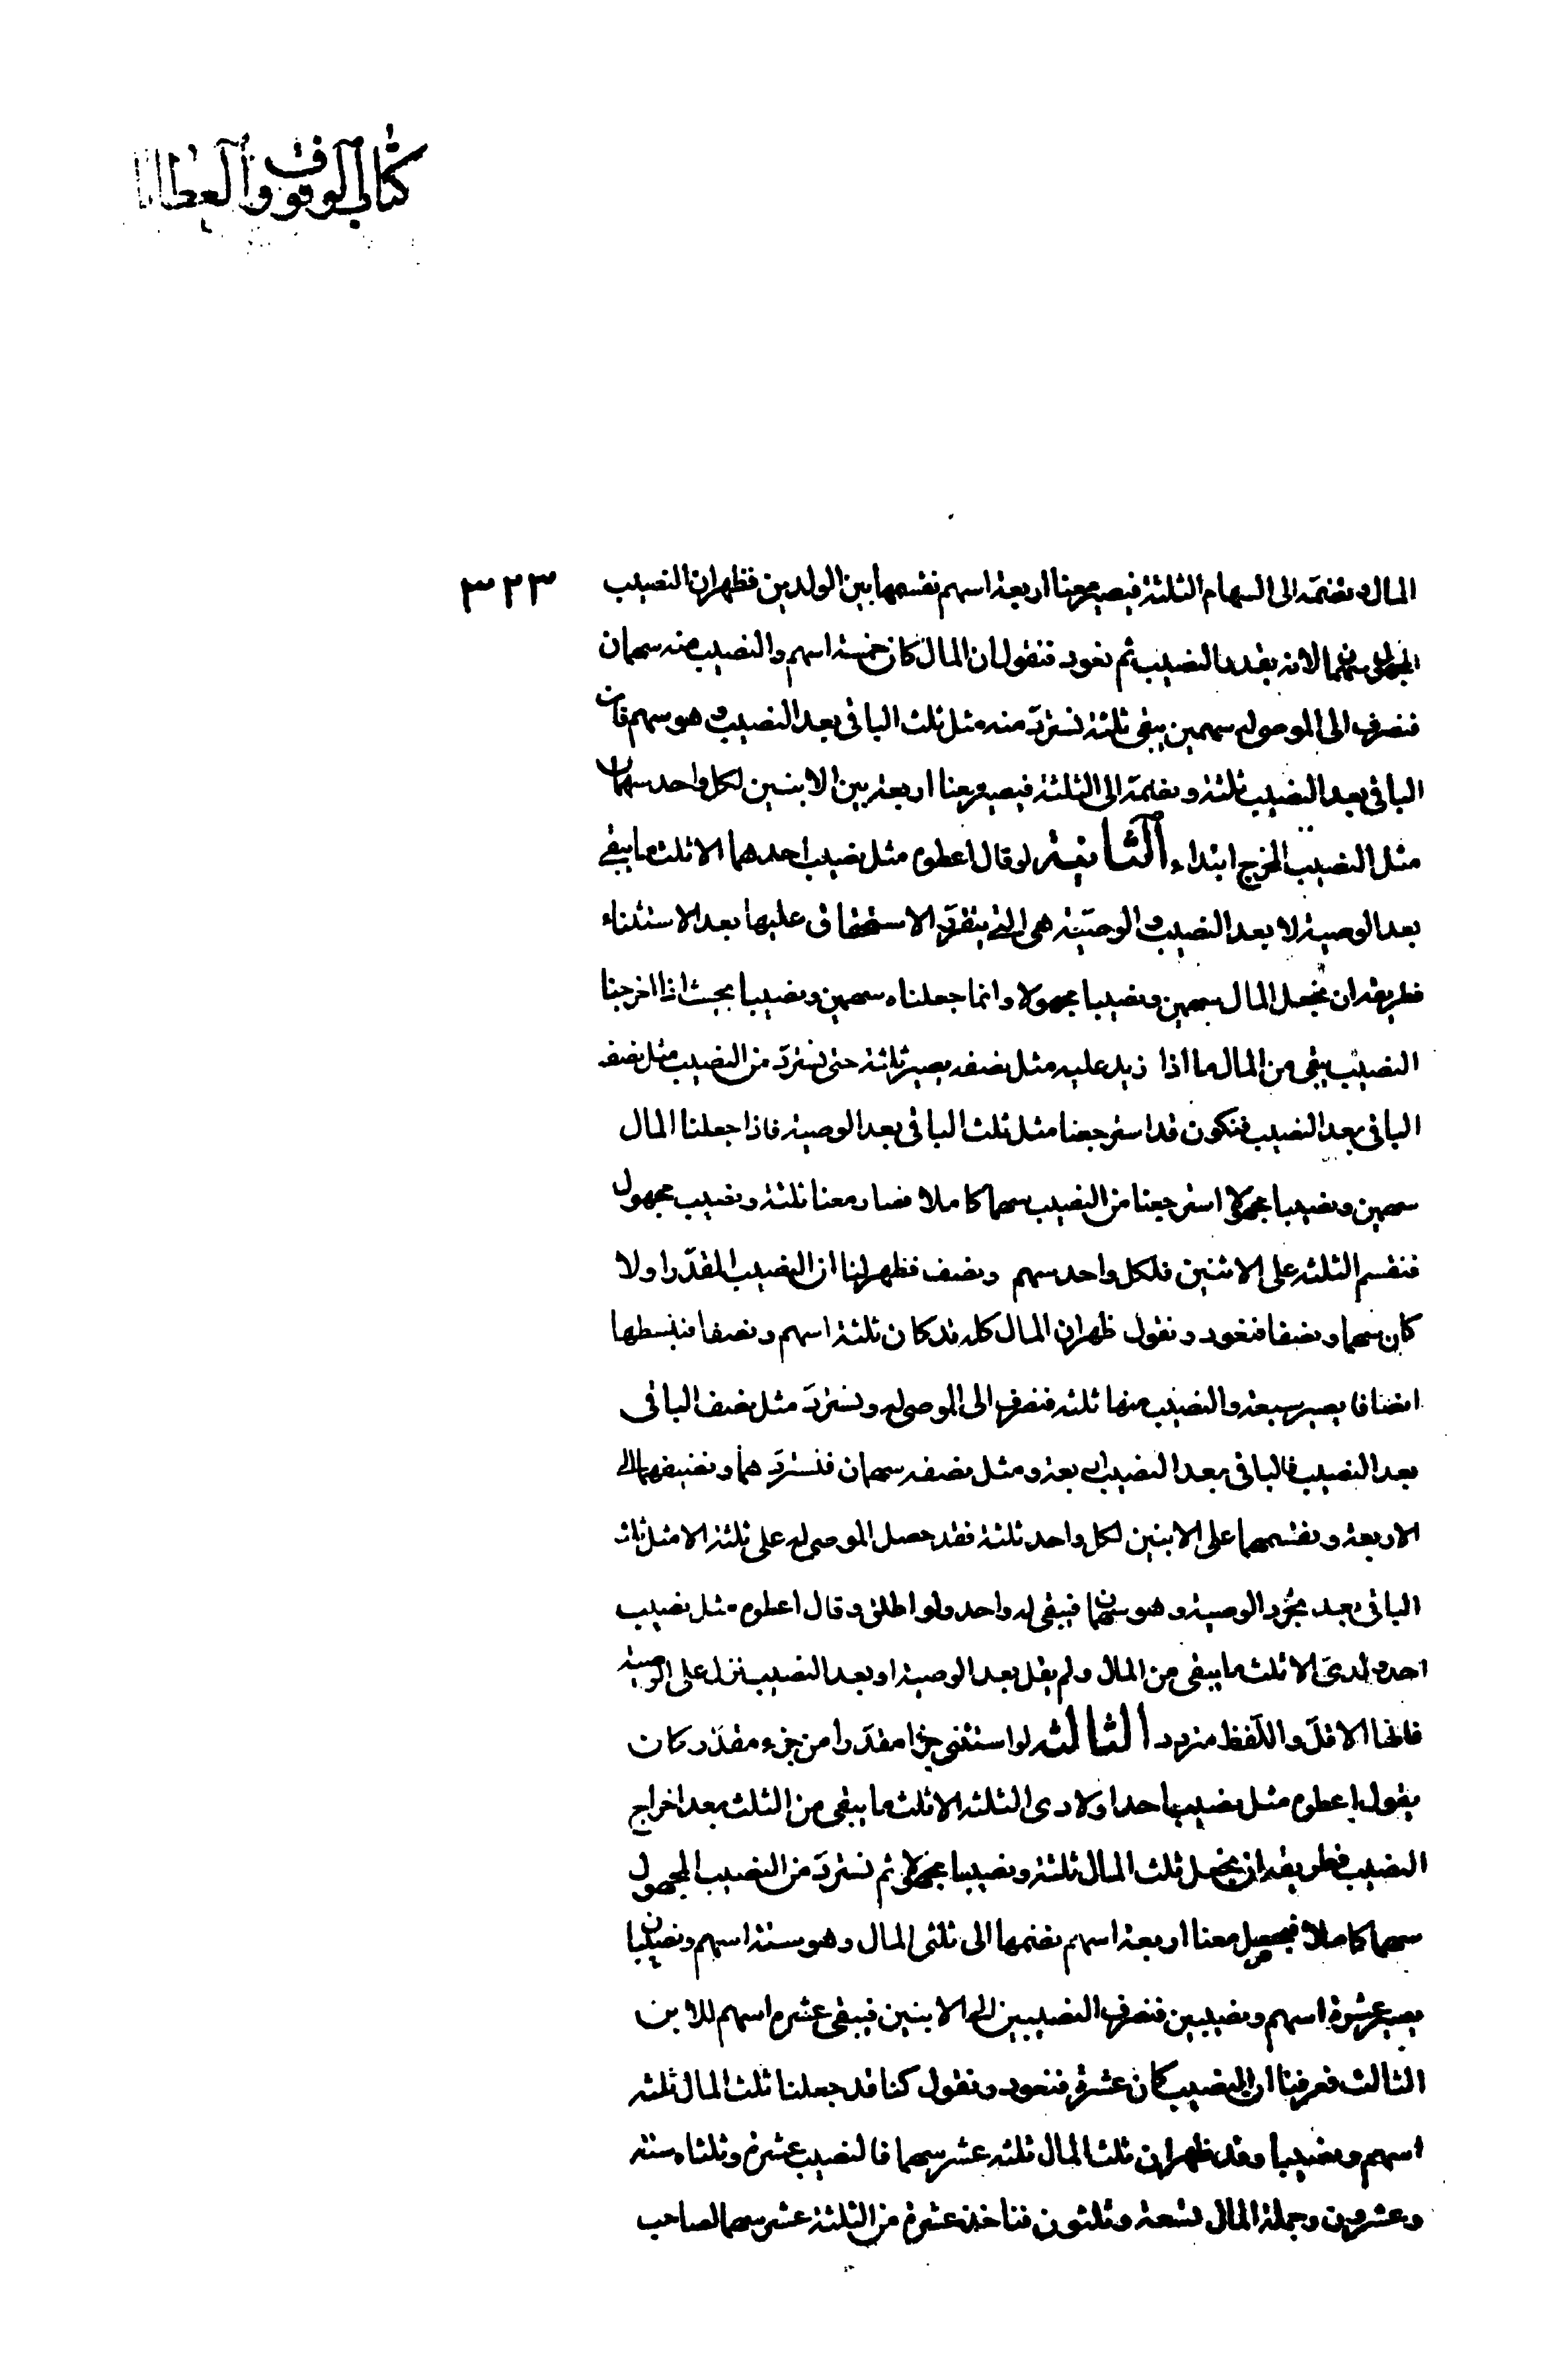 كتاب الوقوف والعطايا
٣٢٣
المال ونضمّه الى السهام الثلثة فيصير معنا اربعة اسهم نقسمها بين الولدين فظهر ان النصيب
المجهول سهمان لانه بقدر النصيب ثم نعود فنقول ان المال كان خمسة اسهم والنصيب منه سهمان
فنصرف الى الموصى له سهمين يبقى ثلثة نستردّ منه مثل ثلث الباقى بعد النصيب وهو سهم فان
الباقى بعد النصيب ثلثة ونضمّه الى الثلثة فيصير معنا اربعة بين الابنين لكل واحد سهمان
مثل النصيب المخرج ابتداء الثانية لو قال اعطوه مثل نصيب احدهما الا ثلث ما يبقى
بعد الوصية لا بعد النصيب والوصيّة هى التى يتقرّر الاستحقاق عليها بعد الاستثناء
فطريقه ان نجعل المال سهمين ونصيبا مجهولا وانما جعلناه سهمين ونصيبا بحيث اذا اخرجنا
النصيب يبقى من المال ما اذا زيد عليه مثل نصفه يصير ثلثة حتى نستردّ من النصيب مثل نصف
الباقى بعد النصيب فنكون قد استرجعنا مثل ثلث الباقى بعد الوصية فاذا جعلنا المال
سهمين ونصيبا مجهولا استرجعنا من النصيب سهما كاملا فصار معنا ثلثة ونصيب مجهول
فنقسم الثلثة على الاثنين فلكل واحد سهم ونصف فظهر لنا ان النصيب المقدّر اولا
كان سهما ونصفا فنعود ونقول ظهر ان المال كله قد كان ثلثة اسهم ونصفا فنبسطها
انصافا يصير سبعة والنصيب منها ثلثة فنصرف الى الموصى له ونستردّ مثل نصف الباقى
بعد النصيب فالباقى بعد النصيب اربعة ومثل نصفه سهمان فنستردّهما ونضيفهما الى
الاربعة ونقسمها على الابنين لكل واحد ثلثة فقد حصل الموصى له على ثلثة الا مثل ثلث
الباقى بعد مجرّد الوصية وهو سهمان فيبقى له واحد ولو اطلق وقال اعطوه مثل نصيب
احد ولدىّ الا ثلث ما يبقى من المال ولم يقل بعد الوصية او بعد النصيب نزل على الوصية
فانها الاقلّ واللّفظ متردد الثالثه لو استثنى جزءا مقدّرا من جزء مقدّر كان
يقول اعطوه مثل نصيب احد اولادى الثلثه الا ثلث ما يبقى من الثلث بعد اخراج
النصيب فطريقه ان نجعل ثلث المال ثلثة ونصيبا مجهولا ثم نستردّ من النصيب المجهول
سهما كاملا فيحصل معنا اربعة اسهم نضمها الى ثلثى المال وهو ستة اسهم ونصيبان
يصير عشرة اسهم ونصيبين فنصرف النصيبين الى الابنين فيبقى عشره اسهم للابن
الثالث فعرفنا ان النصيب كان عشرة فنعود ونقول كنا قد جعلنا ثلث المال ثلثه
اسهم ونصيبا وقد ظهر ان ثلث المال ثلثه عشر سهما فالنصيب عشرة وثلثاه ستة
وعشرون وجملة المال تسعة وثلثون فناخذ عشرة من الثلثة عشر سهما لصاحب